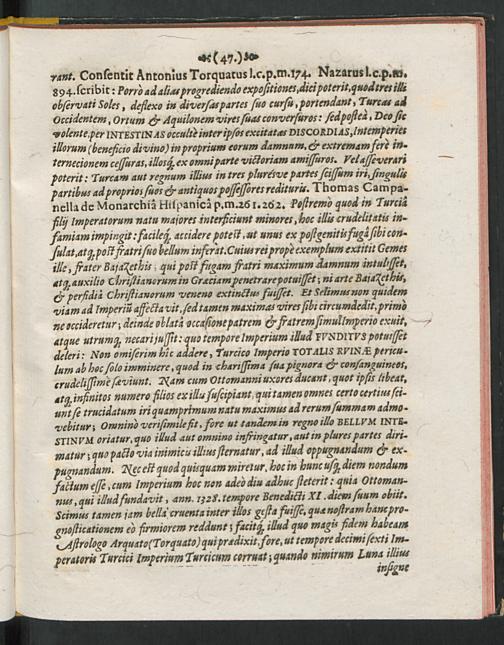 (47.)
rant. Consentit Antonius Torquatus l.c.p.m.174. Nazarus l.c.p.m.
894. scribit: Porrò ad alias progrediendo expositiones, dici poterit, quod tres illi
observati Soles, deflexo in diversas partes suo cursu, portendant, Turcas ad
Occidentem, Ortum & Aquilonem vires suas conversuros: sed posteà, Deo sic
volente, per INTESTINAS occultè inter ipsos excitatas DISCORDIAS, Intemperies
illorum (beneficio divino) in proprium eorum damnum, & extremam ferè in-
ternecionem cessuras, illosq́, ex omni parte victoriam amissuros. Vel asseverari
poterit: Turcam aut regnum illius in tres plureśve partes scissum iri, singulis
partibus ad proprios suos & antiquos possessores redituris. Thomas Campa-
nella de Monarchiâ Hispanicâ p.m.261.262. Postremò quod in Turciâ
filij Imperatorum natu majores interficiunt minores, hoc illis crudelitatis in-
famiam impingit: facileq́, accidere potest, ut unus ex postgenitis fugâ sibi con-
sulat, atq́, post fratri suo bellum inferat. Cuius rei propè exemplum extitit Gemes
ille, frater Bajazethis; qui post fugam fratri maximum damnum intulisset,
atq́, auxilio Christianorum in Græciam penetrare potuisset; ni arte Bajazethis,
& perfidiâ Christianorum veneno extinctus fuisset. Et Selimus non quidem
viam ad Imperiũ affectavit, sed tamen maximas vires sibi circumdedit, primò
ne occideretur; deinde oblatâ occasione patrem & fratrem simul Imperio exuit,
atque utrumq́, necari jussit: quo tempore Imperium illud FVNDITVS potuisset
deleri: Non omiserim hîc addere, Turcico Imperio TOTALIS RVINÆ pericu-
lum ab hoc solo imminere, quod in charissima sua pignora & consanguineos,
crudelissimè sæviunt. Nam cum Ottomanni uxores ducant, quot ipsis libeat,
atq́, infinitos numero filios ex illis suscipiant, qui tamen omnes certo certius sci-
unt se trucidatum iri quamprimum natu maximus ad rerum summam admo-
vebitur; Omninò verisimile fit, fore ut tandem in regno illo BELLVM INTE-
STINVM oriatur, quo illud aut omnino infringatur, aut in plures partes diri-
matur; quo pacto via inimicis illius sternatur, ad illud oppugnandum & ex-
pugnandum. Nec est quod quisquam miretur, hoc in hunc usq́, diem nondum
factum esse, cum Imperium hoc non adeò diu adhuc steterit: quia Ottoman-
nus, qui illud fundavit, ann. 1328. tempore Benedicti XI. diem suum obiit.
Scimus tamen jam bella cruenta inter illos gesta fuisse, quæ nostram hanc pro-
gnosticationem eò firmiorem reddunt; facitq́, illud quo magis fidem habeam
Astrologo Arquato (Torquato) qui prædixit, fore, ut tempore decimi sexti Im-
peratoris Turcici Imperium Turcicum corruat; quando nimirum Luna illius
insigne